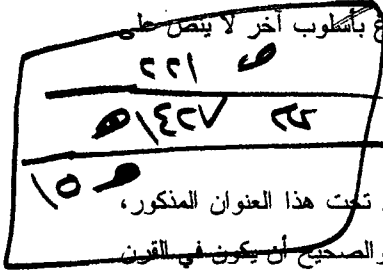 غ بأسلوب آخر لا ينص على
ص ٢٢١
١٤٢٧ هـ
ص ١٥
تحت هذا العنوان المذكور،
والصحيح أن يكون في القرن